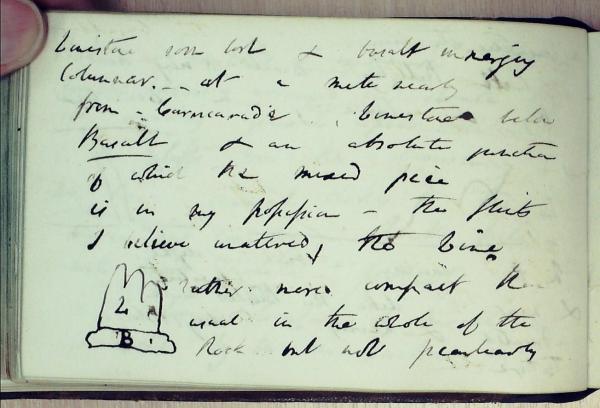 Limestone soon lost & basalt emerging
Columnar. - at a mete nearly
from - Limestone below
Basalt & an absolute junction
of which the mixed piece
is in my possession - the flints
I believe unaltered, the lime
L
rather more compact than
usual in the whole of the
B
Rock but not peculiarly